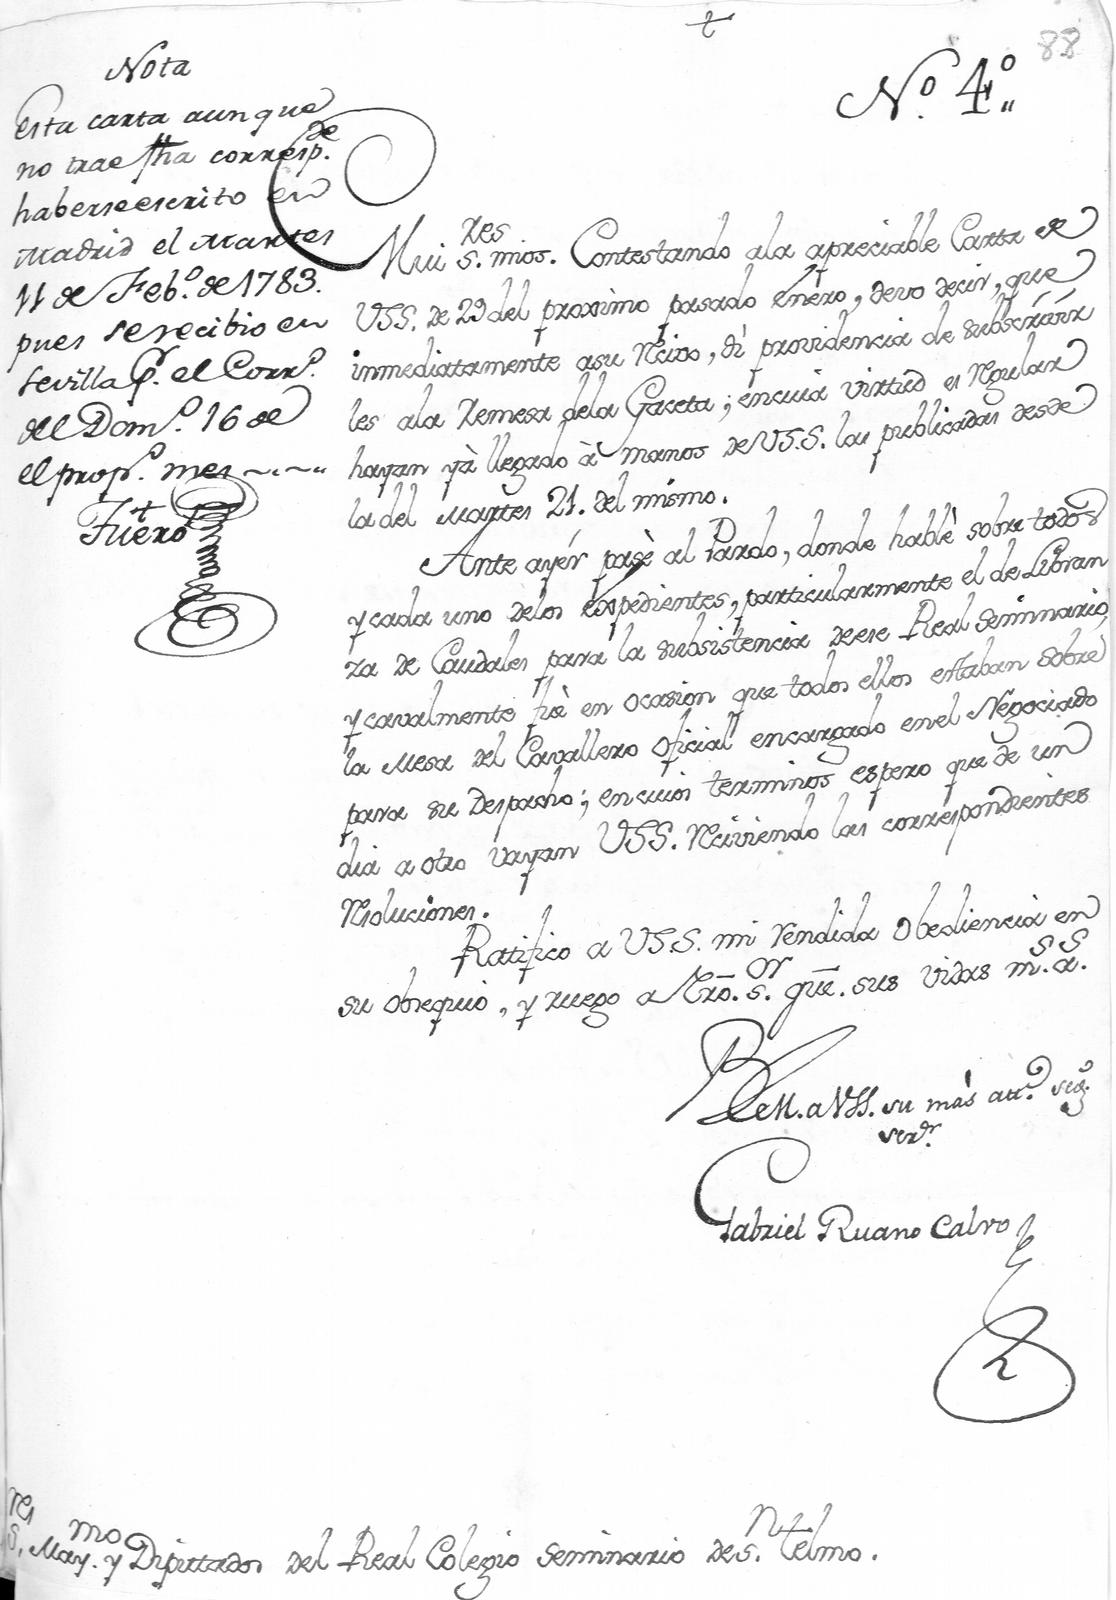 88
Nº 4º
Nota
Esta carta aunque
no trae fha correspde.
haberse escrito en
Madrid el Martes
11 de Febº. de 1783.
pues se recibio en
Sevilla p. el Corrº.
del Domº. 16 de
el propº. mes
Fuero
Mui Sres. mios. Contestando ala apreciable Carta de
VSS. de 29 del proximo pasado enéro, devo decir, que
inmediatamente asu recivo, dì providencia de subscrivir
les ala remesa dela Gaceta; encuia virtud es regular
hayan yà llegado à manos de VSS. las publicadas desde
la del Martes 21. del mismo.
Ante ayér pasè al Pardo, donde hablè sobre todos
y cada uno delos Expedientes, particularmente el de Libran
za de Caudales para la subsistencia deese Real Seminario,
y cavalmente fuè en ocasion que todos ellos estaban sobre
la Mesa del Cavallero Oficial encargado enel Negociado
para su Despacho; encuios terminos espero que de un
dia a otro vayan VSS. reciviendo las correspondientes
resoluciones.
Ratifico a VSS. mi rendida Obediencia en
su obsequio, y ruego a Nro. Sor. gue. sus vidas ms. as.
BLM. a VSS. su màs attº. segº.
serdr.
Gabriel Ruano Calvo
Sres. Maymo. y Diputados del Real Colegio Seminario de Sn. Telmo.